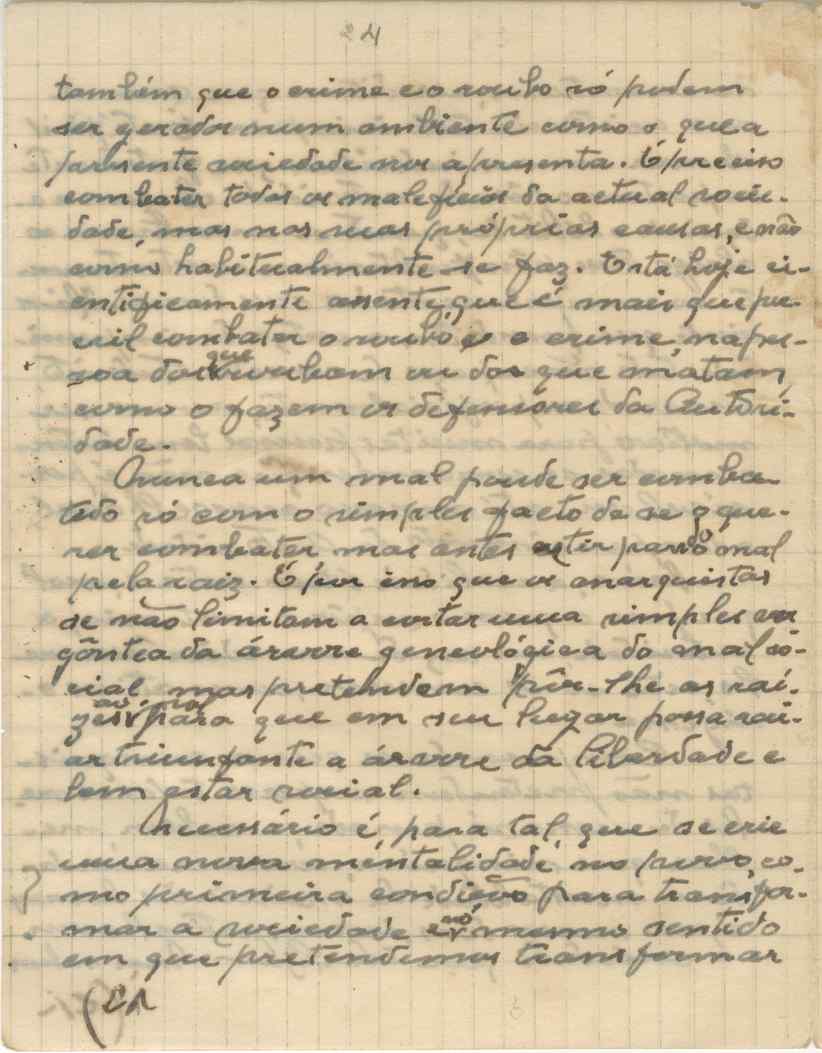 24
também que o crime e o roubo só podem
ser gerados num ambiente como o que a
presente sociedade nos apresenta. É preciso
combater todos os maleficios da actual socie-
dade, mas nas suas próprias causas, e não
como habitualmente se faz. Está hoje ci-
entificamente assente, que é mais que pue-
ril combater o roubo e o crime, na pes-
soa dos que roubam ou dos que matam,
como o fazem os defensores da Autori-
dade.
Nunca um mal poude ser comba-
tido só com o simples facto de se que-
rer combater mas antes partir do mal
pela raiz. É por isso que os anarquistas
se não limitam a cortar uma simples ver
gôntea da árvore geneológica do mal só-
cial mas pretendem pôr-lhe as raí-
zes ao sol para que em seu lugar possa rai-
ar triunfante a árvore da liberdade e
bem estar social.
Necessário é para tal que se crie
uma nova mentalidade no povo, co-
mo primeira condição para transfor-
mar a sociedade no mesmo sentido
em que pretendemos transformar